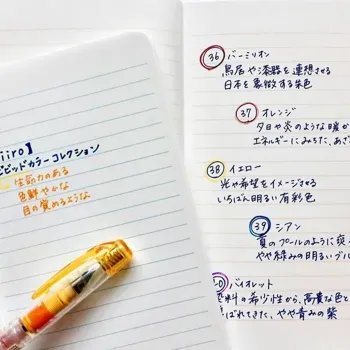 iiro】
ビビッドカラーコレクション
生命力のある
色鮮やかな
目の覚めるような
36 バーミリオン
鳥居や漆器を連想させる
日本を象徴する朱色
37 オレンジ
夕日や炎のような暖か
エネルギーにみちた、あざ
38 イエロー
光や希望をイメージさせる
いちばん明るい有彩色
39 シアン
夏のプールのように爽
やや緑みの明るいブル
バイオレット
料の希少性から、高貴な色と
ばれてきた、やや青みの紫